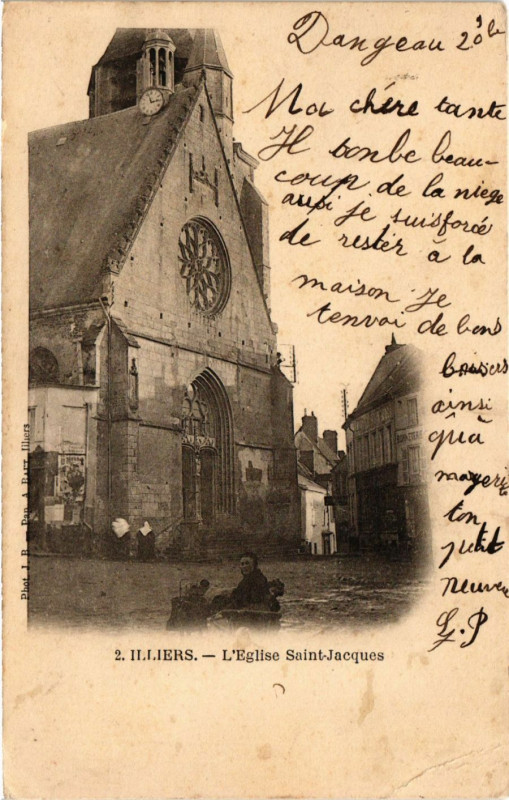 Dangeau 20 bre
Ma chère tante
Il tonbe beau-
coup de la niege
aussi je suisforcée
de rester à la
maison Je
tenvoi de bons
baisers
ainsi
qu'à
ton
petit
neuveu
G.P
Phot. J. B. Pap. A. Illiers
2. ILLIERS. — L'Eglise Saint-Jacques